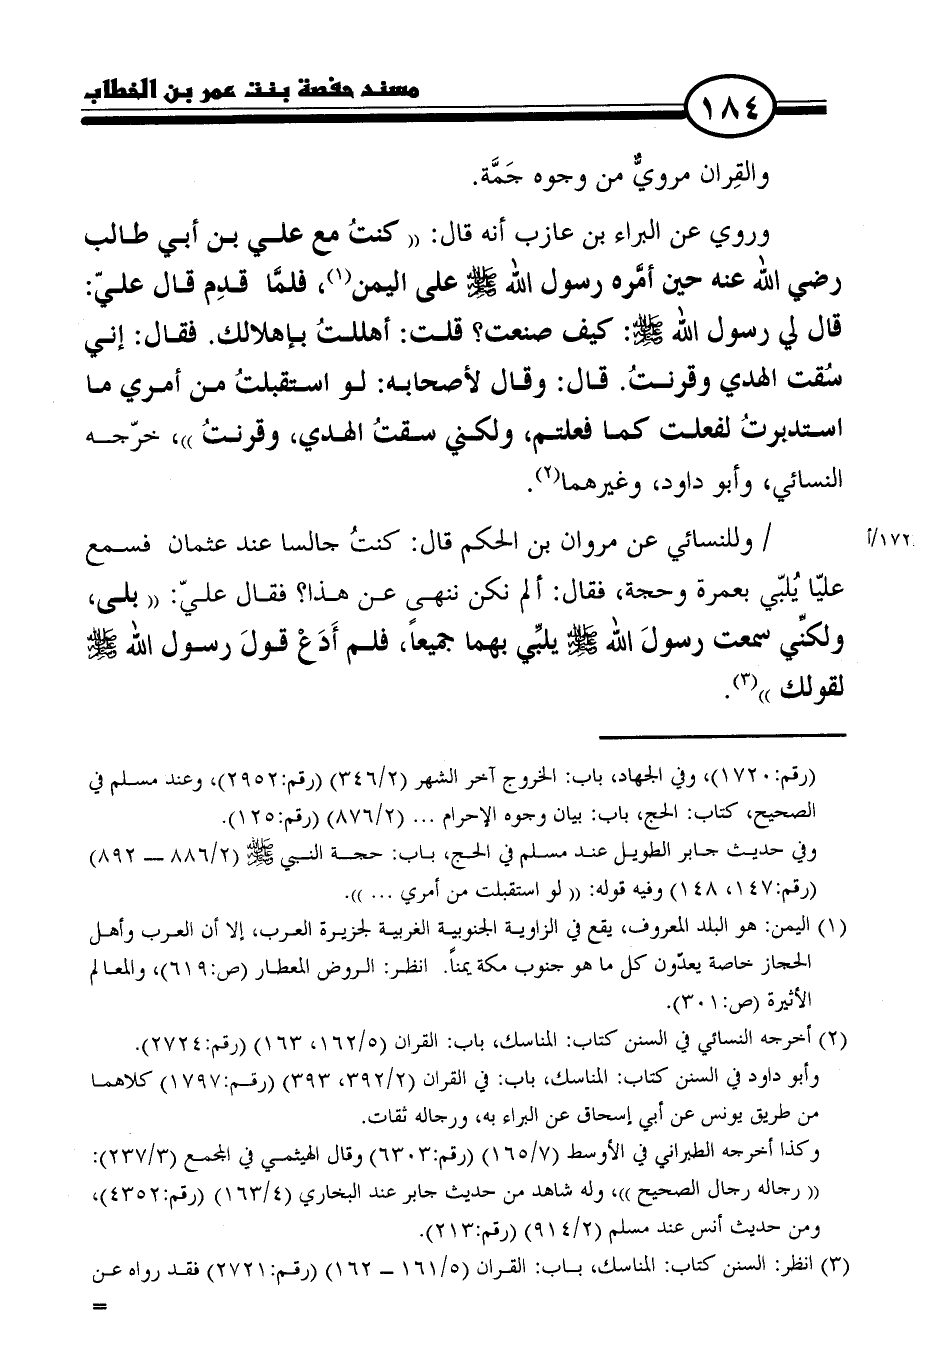 مسند حفصة بنت عمر بن الخطاب
١٨٤
والقِران مرويٌّ من وجوه جَمَّة.
وروي عن البراء بن عازب أنه قال: (( كنتُ مع علي بن أبي طالب
رضي الله عنه حين أمَّره رسول الله ﷺ على اليمن(١)، فلمَّا قدِم قال عليّ:
قال لي رسول الله ﷺ: كيف صنعت؟ قلت: أهللتُ بإهلالك. فقال: إني
سُقت الهدي وقرنتُ. قال: وقال لأصحابه: لو استقبلتُ من أمري ما
استدبرتُ لفعلت كما فعلتم، ولكني سقتُ الهدي، وقرنتُ ))، خرّجه
النسائي، وأبو داود، وغيرهما(٢).
١٧٢/أ
/ وللنسائي عن مروان بن الحكم قال: كنتُ جالسا عند عثمان فسمع
عليًّا يُلبّي بعمرة وحجة، فقال: ألم نكن ننهى عن هذا؟ فقال عليّ: (( بلى،
ولكنّي سمعت رسولَ الله ﷺ يلبِّي بهما جميعاً، فلم أَدَعْ قولَ رسول الله ﷺ
لقولك ))(٣).
(رقم:١٧٢٠)، وفي الجهاد، باب: الخروج آخر الشهر (٣٤٦/٢) (رقم:٢٩٥٢)، وعند مسلم في
الصحيح، كتاب: الحج، باب: بيان وجوه الإحرام ... (٨٧٦/٢) (رقم:١٢٥).
وفي حديث جابر الطويل عند مسلم في الحج، باب: حجة النبي ﷺ (٨٨٦/٢ – ٨٩٢)
(رقم:١٤٧، ١٤٨) وفيه قوله: (( لو استقبلت من أمري ... )).
(١) اليمن: هو البلد المعروف، يقع في الزاوية الجنوبية الغربية لجزيرة العرب، إلا أن العرب وأهل
الحجاز خاصة يعدّون كل ما هو جنوب مكة يمناً. انظر: الروض المعطار (ص:٦١٩)، والمعالم
الأثيرة (ص:٣٠١).
(٢) أخرجه النسائي في السنن كتاب: المناسك، باب: القران (١٦٢/٥، ١٦٣) (رقم:٢٧٢٤).
وأبو داود في السنن كتاب: المناسك، باب: في القران (٣٩٢/٢، ٣٩٣) (رقم:١٧٩٧) كلاهما
من طريق يونس عن أبي إسحاق عن البراء به، ورجاله ثقات.
وكذا أخرجه الطبراني في الأوسط (١٦٥/٧) (رقم:٦٣٠٣) وقال الهيثمي في المجمع (٢٣٧/٣):
(( رجاله رجال الصحيح ))، وله شاهد من حديث جابر عند البخاري (١٦٣/٤) (رقم:٤٣٥٢)،
ومن حديث أنس عند مسلم (٩١٤/٢) (رقم:٢١٣).
(٣) انظر: السنن كتاب: المناسك، باب: القران (١٦١/٥ – ١٦٢) (رقم:٢٧٢١) فقد رواه عن
=